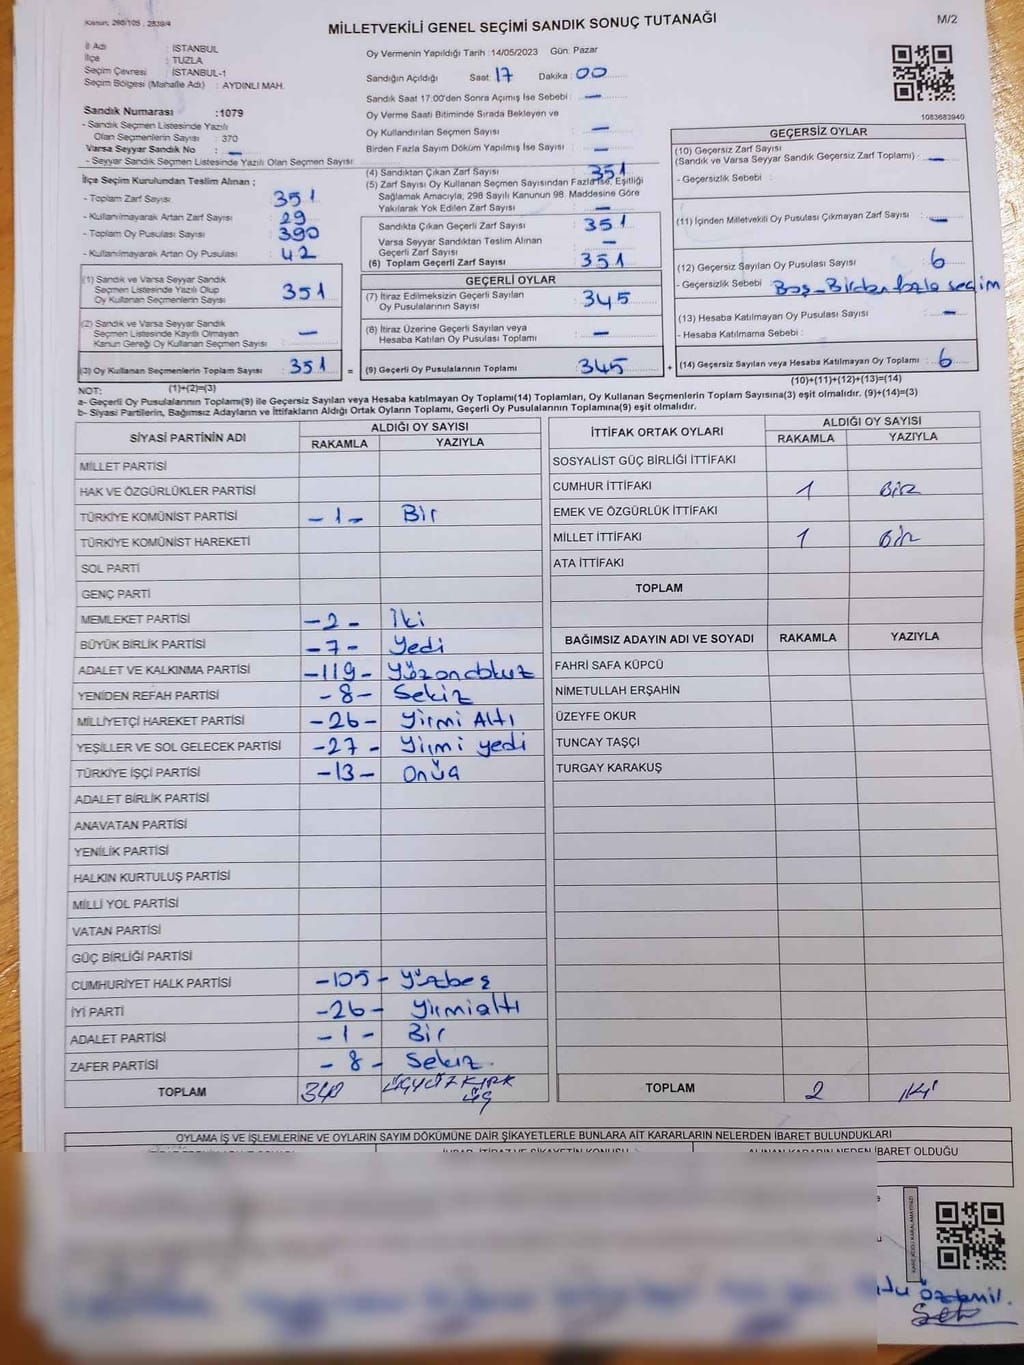 Kanun: 298/105 , 2839/4
MİLLETVEKİLİ GENEL SEÇİMİ SANDIK SONUÇ TUTANAĞI
M/2
İl Adı : İSTANBUL
İlçe : TUZLA
Seçim Çevresi : İSTANBUL-1
Seçim Bölgesi (Mahalle Adı) : AYDINLI MAH.
Sandık Numarası :1079
- Sandık Seçmen Listesinde Yazılı
Olan Seçmenlerin Sayısı : 370
Varsa Seyyar Sandık No : —
- Seyyar Sandık Seçmen Listesinde Yazılı Olan Seçmen Sayısı :
Oy Vermenin Yapıldığı Tarih :14/05/2023 Gün: Pazar
Sandığın Açıldığı Saat: 17 Dakika : 00
Sandık Saat 17:00'den Sonra Açımış İse Sebebi : —
Oy Verme Saati Bitiminde Sırada Bekleyen ve
Oy Kullandırılan Seçmen Sayısı : —
Birden Fazla Sayım Döküm Yapılmış İse Sayısı : —
1083683940
İlçe Seçim Kurulundan Teslim Alınan ;
- Toplam Zarf Sayısı : 351
- Kullanılmayarak Artan Zarf Sayısı : 29
- Toplam Oy Pusulası Sayısı : 390
- Kullanılmayarak Artan Oy Pusulası : 42
(1) Sandık ve Varsa Seyyar Sandık
Seçmen Listesinde Yazılı Olup
Oy Kullanan Seçmenlerin Sayısı : 351
(2) Sandık ve Varsa Seyyar Sandık
Seçmen Listesinde Kayıtlı Olmayan
Kanun Gereği Oy Kullanan Seçmen Sayısı : —
(3) Oy Kullanan Seçmenlerin Toplam Sayısı : 351 =
(1)+(2)=(3)
(4) Sandıktan Çıkan Zarf Sayısı : 351
(5) Zarf Sayısı Oy Kullanan Seçmen Sayısından Fazla İse, Eşitliği
Sağlamak Amacıyla, 298 Sayılı Kanunun 98. Maddesine Göre
Yakılarak Yok Edilen Zarf Sayısı : —
Sandıkta Çıkan Geçerli Zarf Sayısı : 351
Varsa Seyyar Sandıktan Teslim Alınan
Geçerli Zarf Sayısı : —
(6) Toplam Geçerli Zarf Sayısı : 351
GEÇERLİ OYLAR
(7) İtiraz Edilmeksizin Geçerli Sayılan
Oy Pusulalarının Sayısı : 345
(8) İtiraz Üzerine Geçerli Sayılan veya
Hesaba Katılan Oy Pusulası Toplamı : —
(9) Geçerli Oy Pusulalarının Toplamı : 345 +
GEÇERSİZ OYLAR
(10) Geçersiz Zarf Sayısı
(Sandık ve Varsa Seyyar Sandık Geçersiz Zarf Toplamı) : —
- Geçersizlik Sebebi :
(11) İçinden Milletvekili Oy Pusulası Çıkmayan Zarf Sayısı : —
(12) Geçersiz Sayılan Oy Pusulası Sayısı : 6
- Geçersizlik Sebebi : Boş - Birden fazla seçim
(13) Hesaba Katılmayan Oy Pusulası Sayısı : —
- Hesaba Katılmama Sebebi :
(14) Geçersiz Sayılan veya Hesaba Katılmayan Oy Toplamı : 6
(10)+(11)+(12)+(13)=(14)
NOT:
a- Geçerli Oy Pusulalarının Toplamı(9) ile Geçersiz Sayılan veya Hesaba katılmayan Oy Toplamı(14) Toplamları, Oy Kullanan Seçmenlerin Toplam Sayısına(3) eşit olmalıdır. (9)+(14)=(3)
b- Siyasi Partilerin, Bağımsız Adayların ve İttifakların Aldığı Ortak Oyların Toplamı, Geçerli Oy Pusulalarının Toplamına(9) eşit olmalıdır.
SİYASİ PARTİNİN ADI ALDIĞI OY SAYISI
RAKAMLA YAZIYLA
MİLLET PARTİSİ
HAK VE ÖZGÜRLÜKLER PARTİSİ
TÜRKİYE KOMÜNİST PARTİSİ -1- Bir
TÜRKİYE KOMÜNİST HAREKETİ
SOL PARTİ
GENÇ PARTİ
MEMLEKET PARTİSİ -2- İki
BÜYÜK BİRLİK PARTİSİ -7- Yedi
ADALET VE KALKINMA PARTİSİ -119- Yüzondokuz
YENİDEN REFAH PARTİSİ -8- Sekiz
MİLLİYETÇİ HAREKET PARTİSİ -26- Yirmi Altı
YEŞİLLER VE SOL GELECEK PARTİSİ -27- Yirmi yedi
TÜRKİYE İŞÇİ PARTİSİ -13- Onüç
ADALET BİRLİK PARTİSİ
ANAVATAN PARTİSİ
YENİLİK PARTİSİ
HALKIN KURTULUŞ PARTİSİ
MİLLİ YOL PARTİSİ
VATAN PARTİSİ
GÜÇ BİRLİĞİ PARTİSİ
CUMHURİYET HALK PARTİSİ -105- Yüzbeş
İYİ PARTİ -26- Yirmialtı
ADALET PARTİSİ -1- Bir
ZAFER PARTİSİ -8- Sekiz
TOPLAM ÜÇYÜZ KIRK
ÜÇ
İTTİFAK ORTAK OYLARI ALDIĞI OY SAYISI
RAKAMLA YAZIYLA
SOSYALİST GÜÇ BİRLİĞİ İTTİFAKI
CUMHUR İTTİFAKI 1 BİR
EMEK VE ÖZGÜRLÜK İTTİFAKI
MİLLET İTTİFAKI 1 BİR
ATA İTTİFAKI
TOPLAM
BAĞIMSIZ ADAYIN ADI VE SOYADI RAKAMLA YAZIYLA
FAHRİ SAFA KÜPCÜ
NİMETULLAH ERŞAHİN
ÜZEYFE OKUR
TUNCAY TAŞÇI
TURGAY KARAKUŞ
TOPLAM 2 İKİ
OYLAMA İŞ VE İŞLEMLERİNE VE OYLARIN SAYIM DÖKÜMÜNE DAİR ŞİKAYETLERLE BUNLARA AİT KARARLARIN NELERDEN İBARET BULUNDUKLARI
İHBAR, İTİRAZ VE ŞİKAYETİN KONUSU
ALINAN KARARIN NEDEN İBARET OLDUĞU
KARE KODU KARALAMAYINIZ